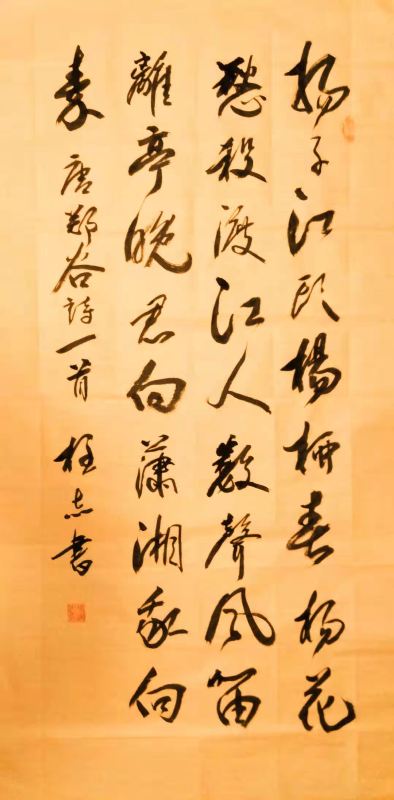 揚子江頭楊柳春楊花
愁殺渡江人數聲風笛
離亭晚君向瀟湘我向
秦 唐鄭谷詩一首 志書